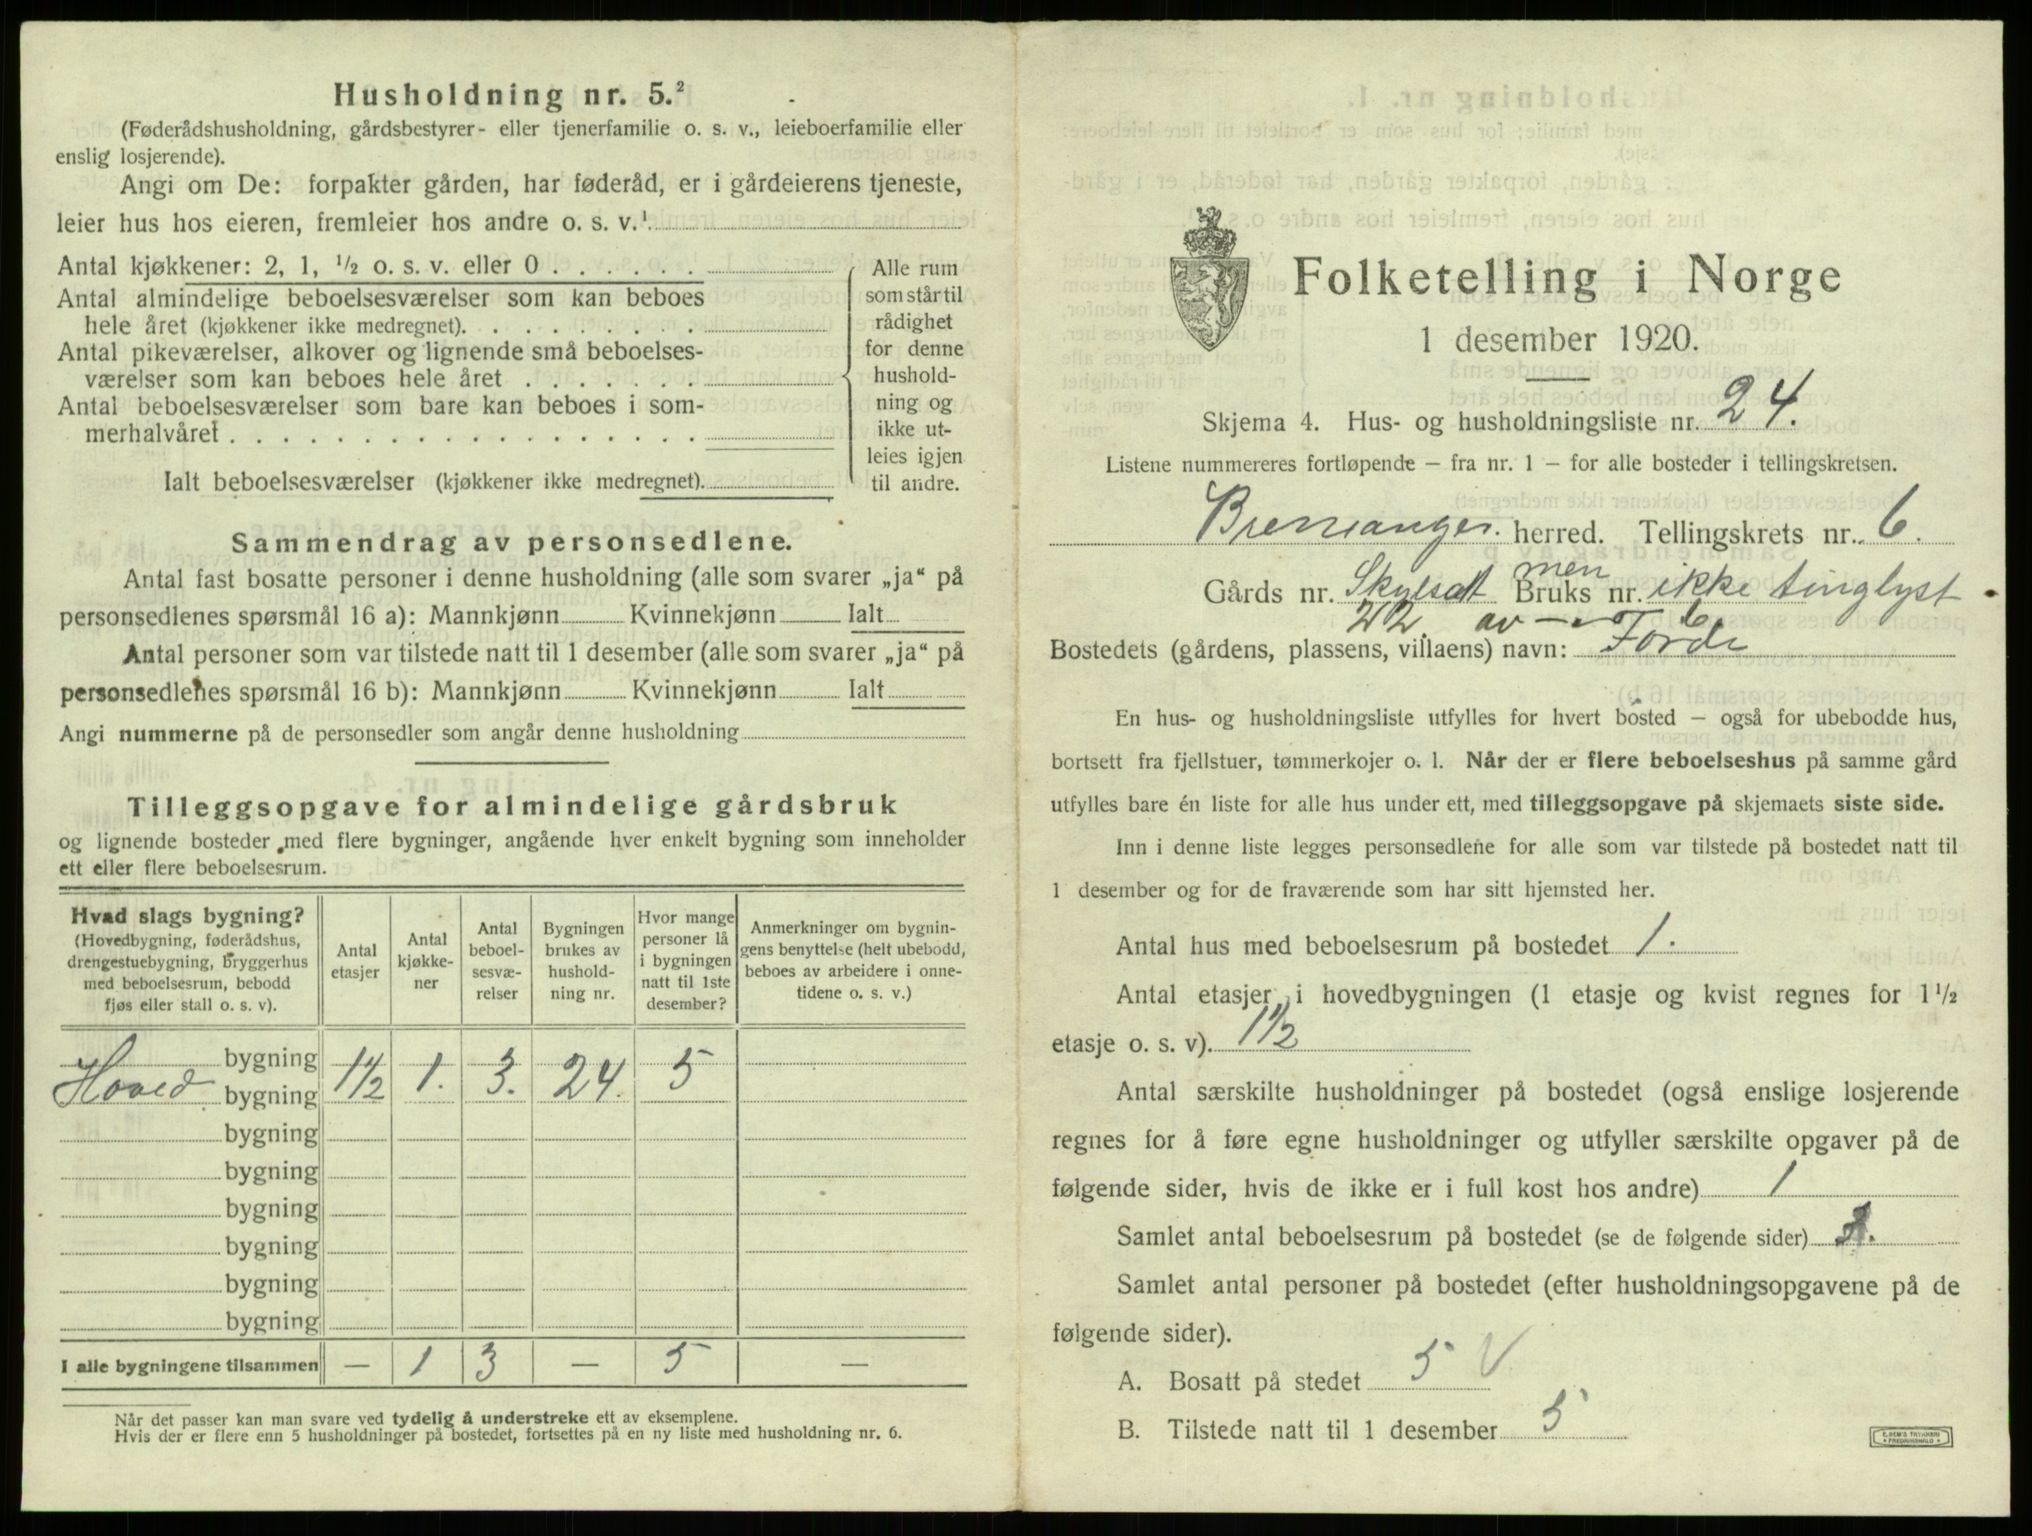 Husholdning nr. 5.²
(Føderådshusholdning, gårdsbestyrer- eller tjenerfamilie o. s. v., leieboerfamilie eller
enslig losjerende).
Angi om De: forpakter gården, har føderåd, er i gårdeierens tjeneste,
leier hus hos eieren, fremleier hos andre o. s. v.¹
Antal kjøkkener: 2, 1, ½ o. s. v. eller 0 . . . . . .
Antal almindelige beboelsesværelser som kan beboes
hele året (kjøkkener ikke medregnet). . . . . . . . .
Antal pikeværelser, alkover og lignende små beboelses-
værelser som kan beboes hele året . . . . . . .
Antal beboelsesværelser som bare kan beboes i som-
merhalvåret . . . . . . . . . . . . . . . . .
Ialt beboelsesværelser (kjøkkener ikke medregnet).
Alle rum
som står til
rådighet
for denne
hushold-
ning og
ikke ut-
leies igjen
til andre.
Sammendrag av personsedlene.
Antal fast bosatte personer i denne husholdning (alle som svarer „ja“ på
personsedlenes spørsmål 16 a): Mannkjønn Kvinnekjønn Ialt
Antal personer som var tilstede natt til 1 desember (alle som svarer „ja“ på
personsedlenes spørsmål 16 b): Mannkjønn Kvinnekjønn Ialt
Angi nummerne på de personsedler som angår denne husholdning
Tilleggsopgave for almindelige gårdsbruk
og lignende bosteder med flere bygninger, angående hver enkelt bygning som inneholder
ett eller flere beboelsesrum.
Hvad slags bygning?
(Hovedbygning, føderådshus,
drengestuebygning, bryggerhus
med beboelsesrum, bebodd
fjøs eller stall o. s. v).
Antal
etasjer
Antal
kjøkke-
ner
Antal
beboel-
sesvæ-
relser
Bygningen
brukes av
hushold-
ning nr.
Hvor mange
personer lå
i bygningen
natt til 1ste
desember?
Anmerkninger om bygnin-
gens benyttelse (helt ubebodd,
beboes av arbeidere i onne-
tidene o. s. v.)
bygning
Hoved bygning 1½ 1. 3. 24. 5
bygning
bygning
bygning
bygning
bygning
bygning
I alle bygningene tilsammen — 1 3 — 5 —
Når det passer kan man svare ved tydelig å understreke ett av eksemplene.
Hvis der er flere enn 5 husholdninger på bostedet, fortsettes på en ny liste med husholdning nr. 6.
Folketelling i Norge
1 desember 1920.
Skjema 4. Hus- og husholdningsliste nr. 24.
Listene nummereres fortløpende – fra nr. 1 – for alle bosteder i tellingskretsen.
Bremanger. herred. Tellingskrets nr. 6.
men
Gårds nr. Skylsatt Bruks nr. ikke tinglyst
22 av 6
Bostedets (gårdens, plassens, villaens) navn: Førde
En hus- og husholdningsliste utfylles for hvert bosted – også for ubebodde hus,
bortsett fra fjellstuer, tømmerkojer o. l. Når der er flere beboelseshus på samme gård
utfylles bare én liste for alle hus under ett, med tilleggsopgave på skjemaets siste side.
Inn i denne liste legges personsedlene for alle som var tilstede på bostedet natt til
1 desember og for de fraværende som har sitt hjemsted her.
Antal hus med beboelsesrum på bostedet 1.
Antal etasjer i hovedbygningen (1 etasje og kvist regnes for 1½
etasje o. s. v). 1½
Antal særskilte husholdninger på bostedet (også enslige losjerende
regnes for å føre egne husholdninger og utfyller særskilte opgaver på de
følgende sider, hvis de ikke er i full kost hos andre) 1
Samlet antal beboelsesrum på bostedet (se de følgende sider)
Samlet antal personer på bostedet (efter husholdningsopgavene på de
følgende sider).
A. Bosatt på stedet 5 V
B. Tilstede natt til 1 desember 5